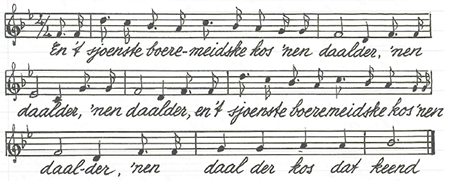 En 't sjoenste boere-meidske kos 'nen daalder, 'nen
daalder, 'nen daalder, en 't sjoenste boeremeidske kos 'nen
daal-der, 'nen daal der kos dat keend